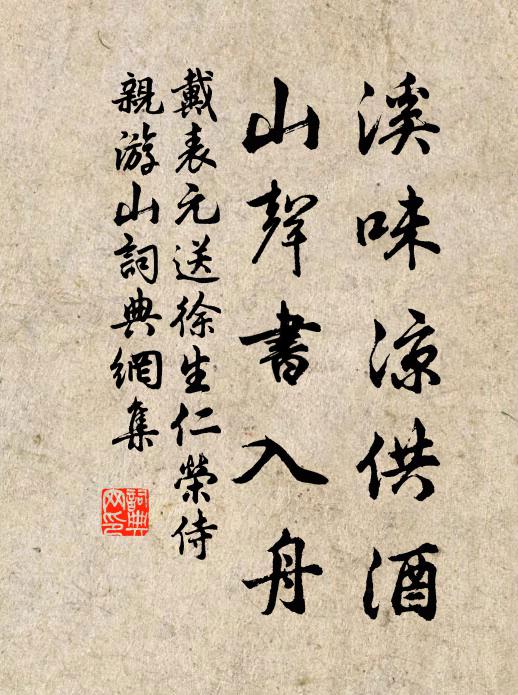 溪味凉供酒
山聲書入舟
戴表元送徐生仁榮侍
親游山詞典網集
詞典網印